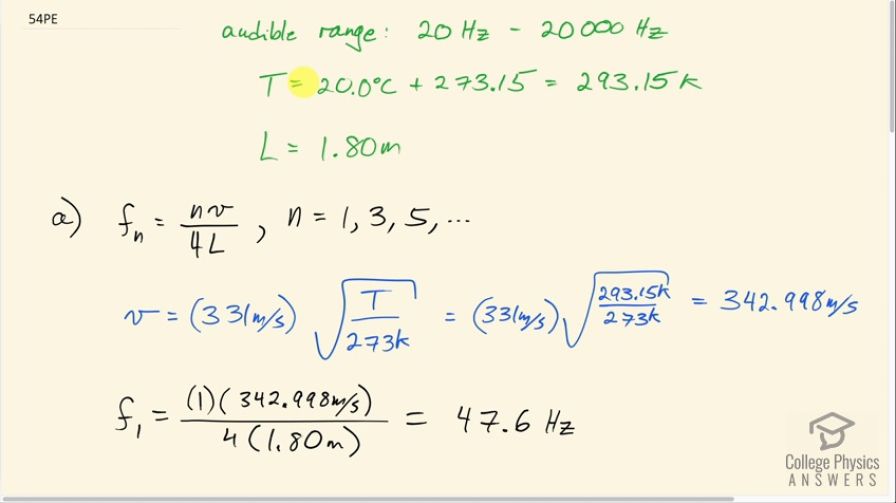 54PE
audible range: 20 Hz - 20 000 Hz
T = 20.0°C + 273.15 = 293.15 K
L = 1.80m
a) fₙ = nv/4L, n = 1, 3, 5, ...
v = (331m/s) √(T/273K) = (331m/s) √(293.15K/273K) = 342.998m/s
f₁ = (1)(342.998m/s)/4(1.80m) = 47.6 Hz
College Physics
ANSWERS